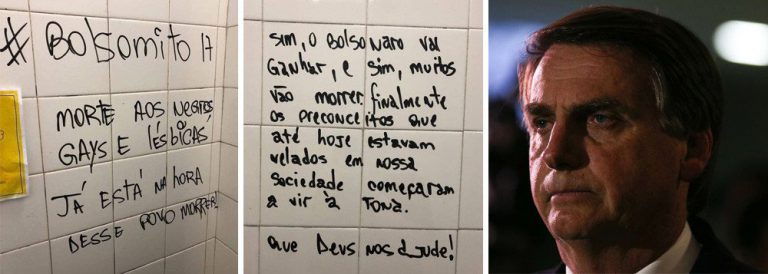 # Bolsomito 17
MORTE AOS NEGROS
GAYS E LÉSBICAS,
JÁ ESTÁ NA HORA
DESSE POVO MORRER!
3
Sim, o Bolsonaro vai
Ganhar, e sim, muitos
vão morrer, finalmente
os preconceitos que
até hoje estavam
velados em nossa
Sociedade começaram
a vir à Tona.
Que Deus nos ajude!